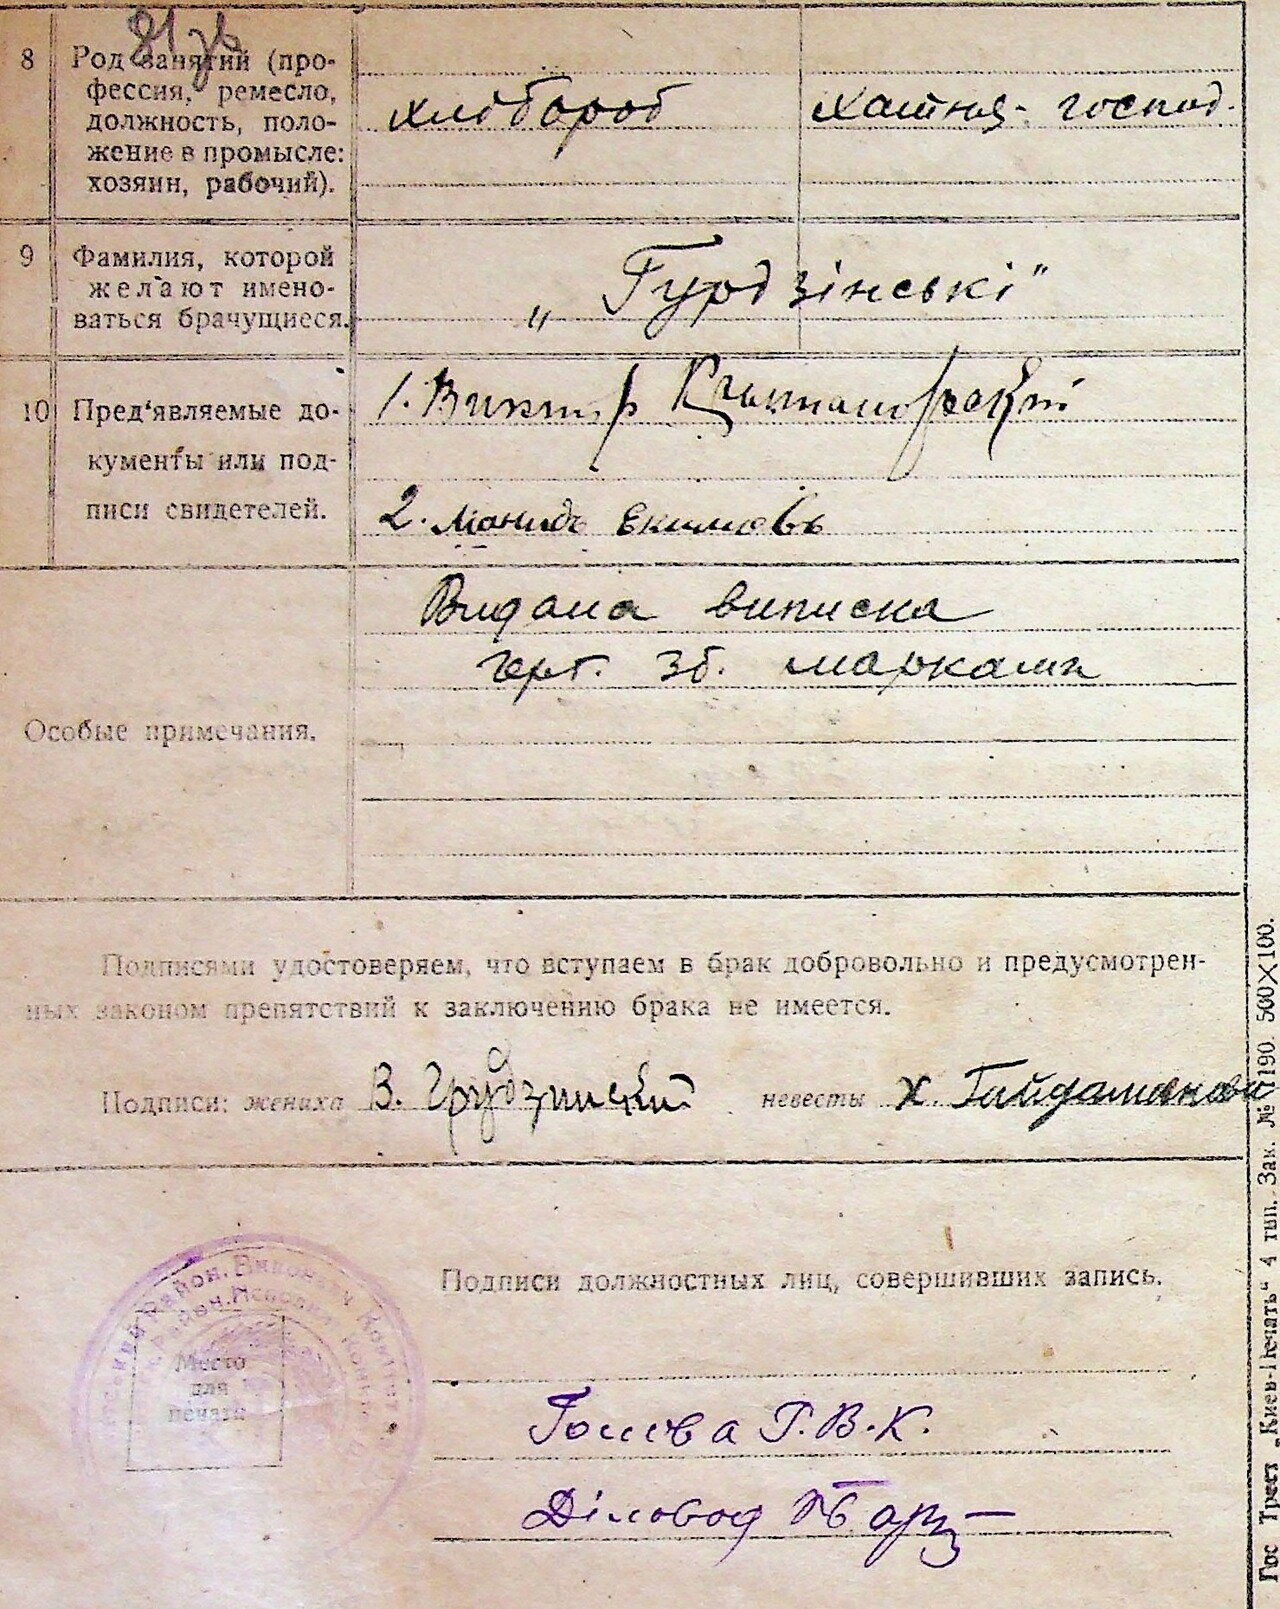 81 зв
8 Род занятий (про-
фессия, ремесло,
должность, поло-
жение в промысле:
хозяин, рабочий).
хлібороб хатня-господ.
9 Фамилия, которой
желают имено-
ваться брачущиеся.
„Гурдзінські"
10 Пред'являемые до-
кументы или под-
писи свидетелей.
1. Виктор
2. Екимовъ
Особые примечания.
Видана виписка
герб. зб. марками
Подписями удостоверяем, что вступаем в брак добровольно и предусмотрен-
ных законом препятствий к заключению брака не имеется.
Подписи: жениха В. Грудзинский невесты Х. Гайдаманова
Подписи должностных лиц, совершивших запись.
Место
для
печати
Голова Р.В.К.
Діловод
Гос Трест „Киев-Печать" 4 тип. Зак. № 1190. 500×100.